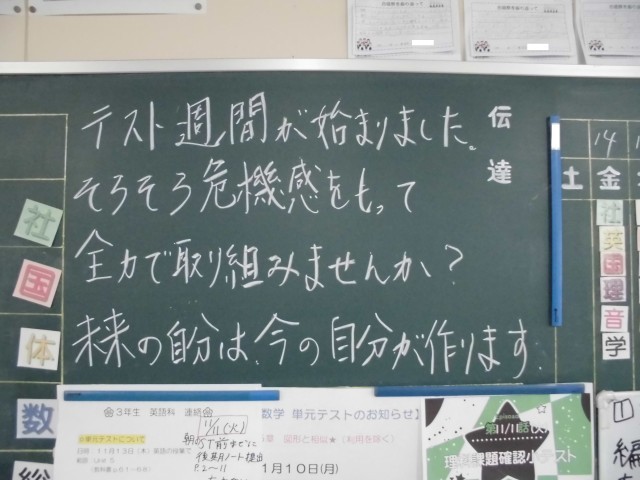 伝達
テスト週間が始まりました。
そろそろ危機感をもって
全力で取り組みませんか?
未来の自分は、今の自分が作ります
社
国
体
数
総
土
金
14
社
英
国
理
音
学
3年生 英語科 連絡
☆単元テストについて
日時:11月13日(木)英語の授業で
11/11(火)
後期ノート提出
P.2〜11
数学 単元テストのお知らせ】
図形と相似★(利用を除く)
1月10日(月)
第11/11話(火)
理科課題確認小テスト
①
編